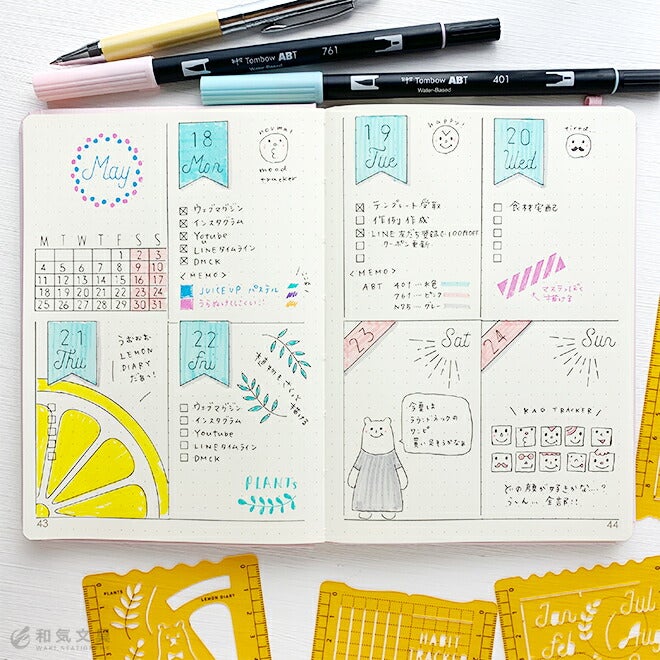 761
Tombow ABT
Water-Based
401
Tombow ABT
Water-Based
May
M T W T F S S
1 2 3
4 5 6 7 8 9 10
11 12 13 14 15 16 17
18 19 20 21 22 23 24
25 26 27 28 29 30 31
18
Mon
normal
mood
tracker
ウェブマガジン
インスタグラム
Youtube
LINEタイムライン
DMCK
<MEMO>
JUICE UP パステル
うらぬけしにくい!
19
Tue
happy!
テンプレート受取
作例作成
LINE友だち登録で100円OFF
クーポン更新
<MEMO>
ABT 401...水色
761...ピンク
N75...グレー
20
Wed
tired..
食材宅配
マステっぽく
描ける
21
Thu
LEMON
DIARY
だぁい!
22
Fri
ウェブマガジン
インスタグラム
Youtube
LINEタイムライン
DMCK
PLANTS
23
Sat
今夏は
ラウンドネックの
ワンピ
買い足そうかなぁ
24
Sun
KAO TRACKER
どの顔が好きかな...?
うーんい 全部!!
43
44
PLANTS
LEMON DIARY
HABIT
TRACKER
Jan
Feb
Jul
Aug
和気文具
WAKI STATIONERY